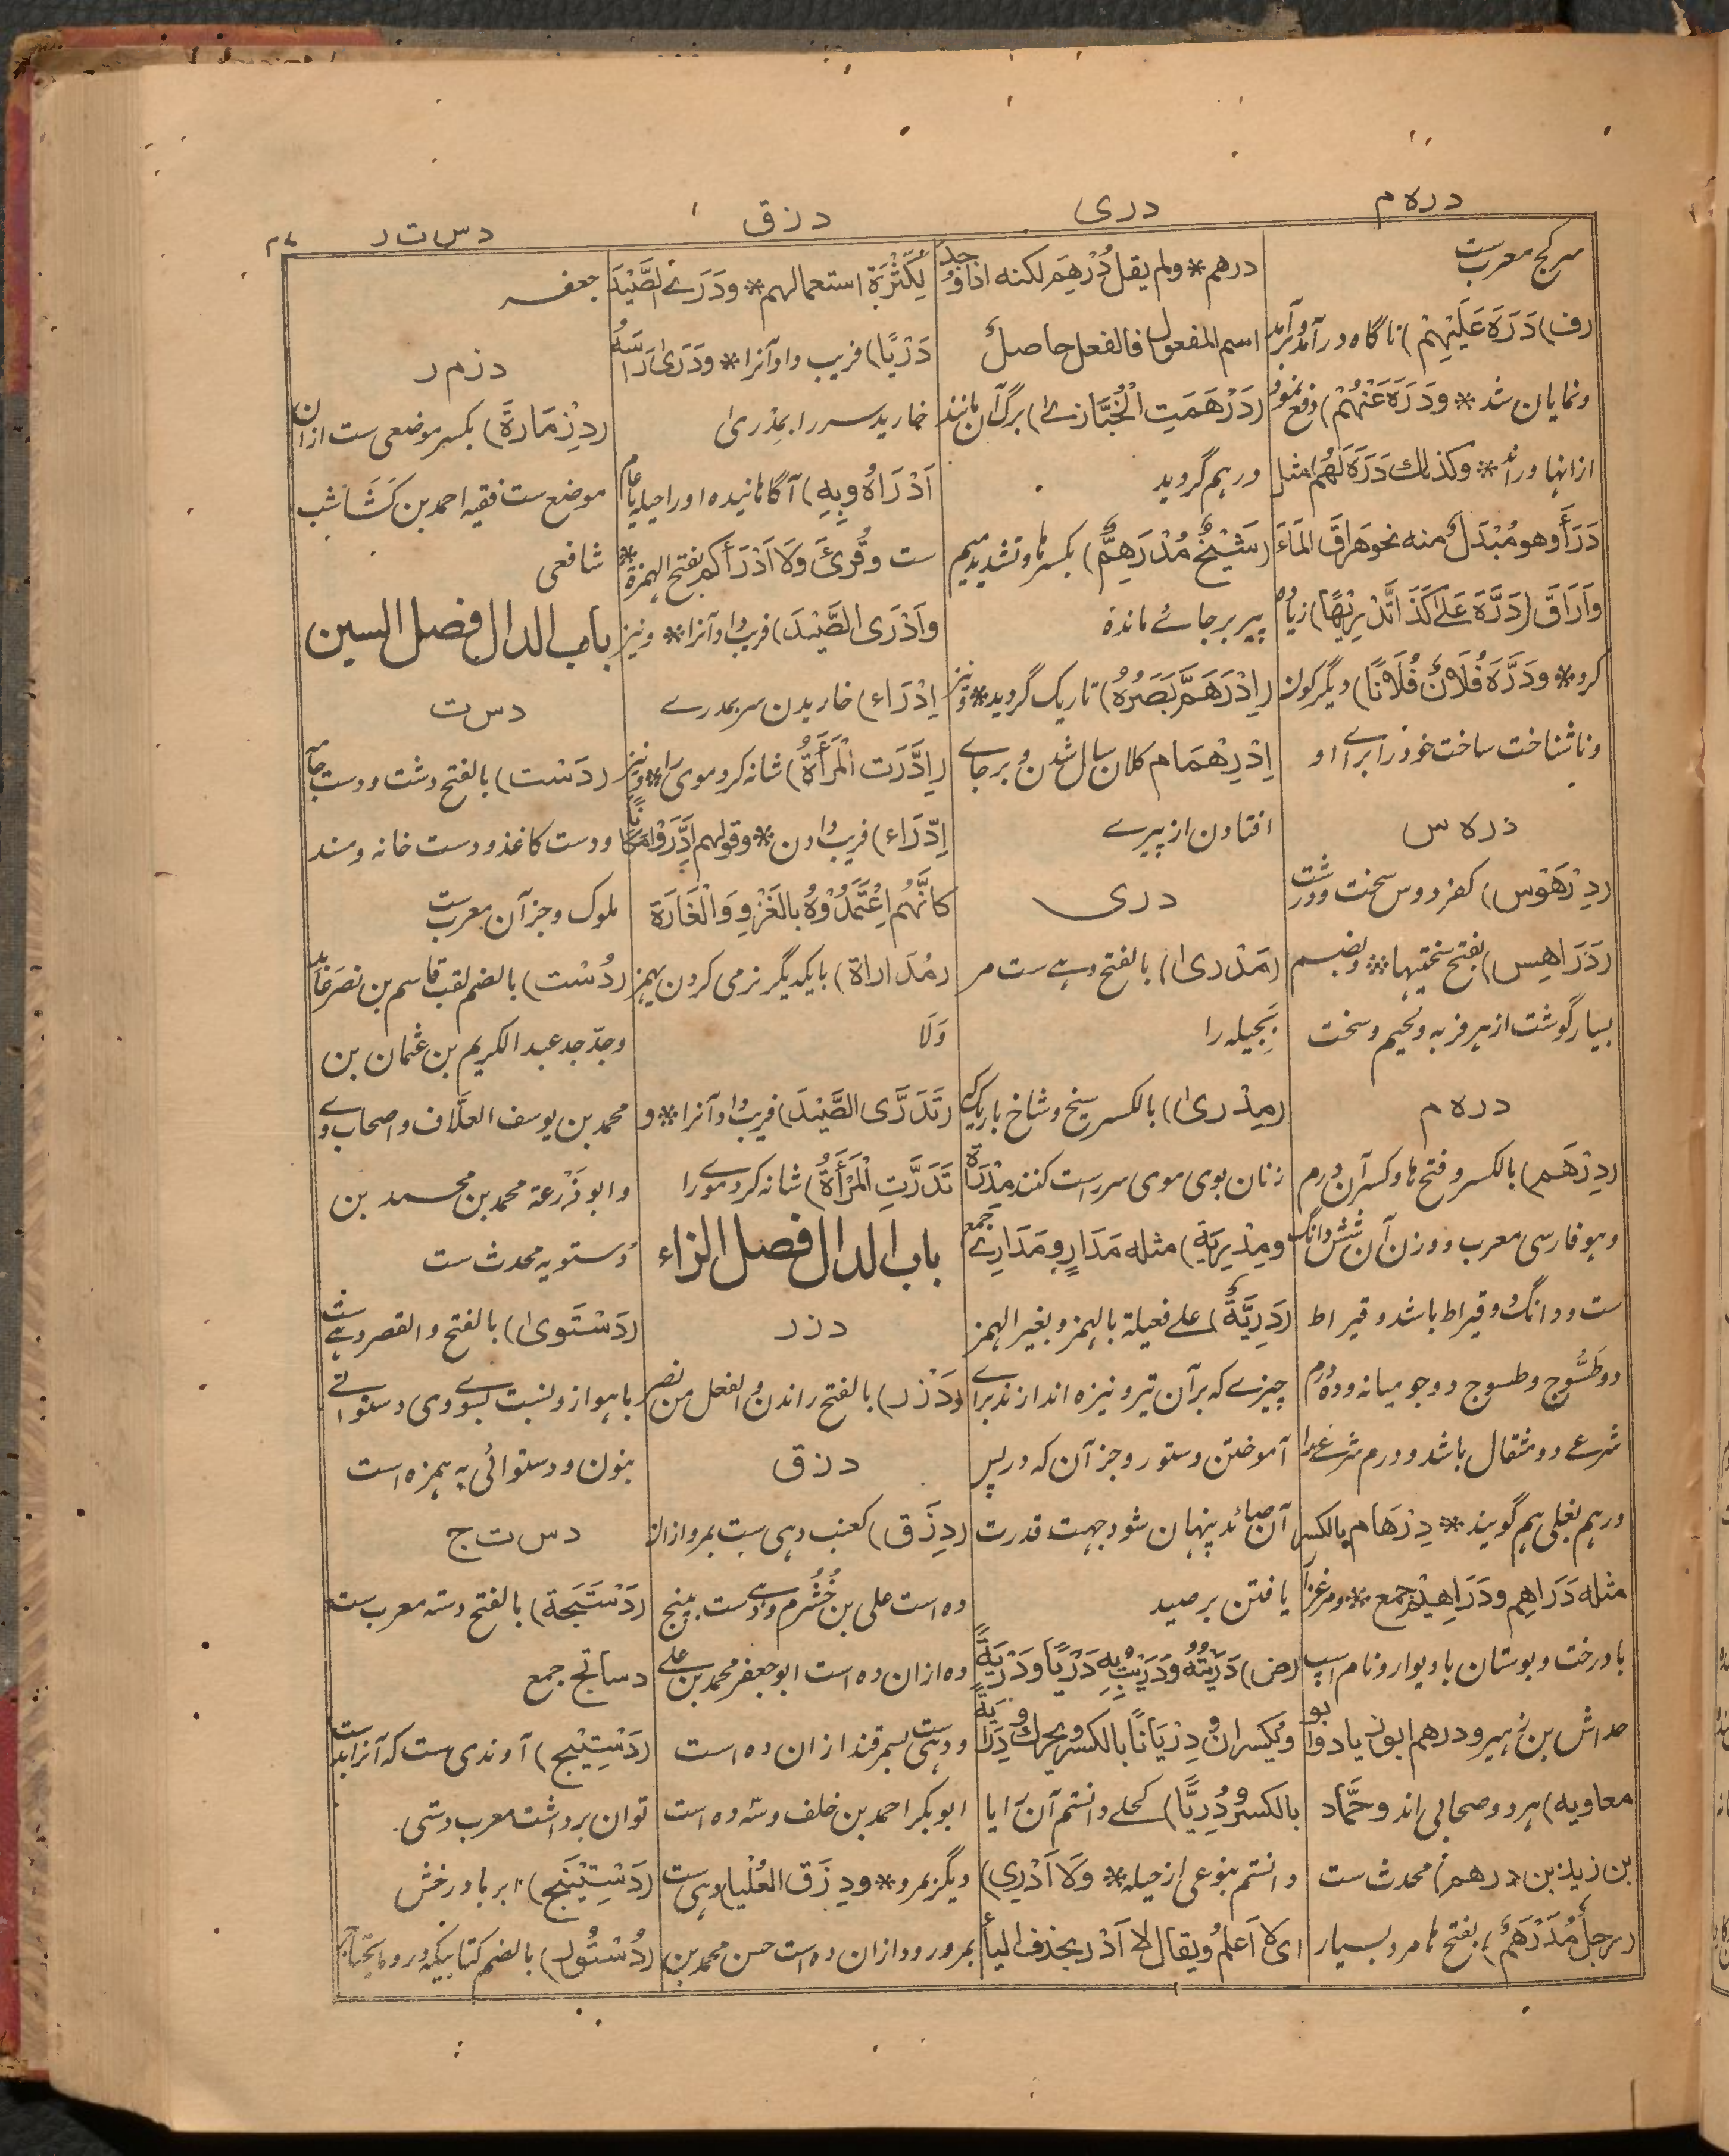 دره م
دری
دزق
دس ت ر
۲۷
سرکج معرب ست
(ف) دَرَهَ عَلَیْهِمْ) ناگاه در آمد و برآمد
و نمایان شد * و دَرَهَ عَنْهُمْ) دفع نمود
از انها و راند * و کذلك دَرَهَ لَهُم مثل
دَرَأَ وهو مُبْدَلٌ منه نحو هَرَاقَ المَاءَ
وَاَرَاقَ (دَرَّهَ عَلیٰ کَذَا تَدْرِیْهًا) زیاده
کرد * و دَرَّهَ فُلَانٌ فُلَانًا) دیگرگون
و ناشناخت ساخت خود را برای او
دره س
(دِرْهَوْس) کفردوس سخت و درشت
(دَرَاهِس) بفتح سختیها * و بضم
بسیار گوشت از هر فربه و لحیم و سخت
دره م
(دِرْهَم) بالکسر و فتح ها و کسر آن درم
و هو فارسی معرب و وزن آن شش دانگ
ست و دانگ دو قیراط باشد و قیراط
دو طَسُّوج و طسوج دو جو میانه و ده درم
شرعے دو مثقال باشد و درم شرعے را
درهم بغلی هم گویند * دِرْهَام بالکسر
مثله دَرَاهِم و دَرَاهِیْم جمع * و مرغزار
با درخت و بوستان با دیوار و نام اسپ
خداش بن زهیر و درهم ابو زیاد و ابو
معاویه) هر دو صحابی اند و حَمَّاد
بن زید بن درهم) محدث ست
(رجلٌ مُدَرْهَمٌ) بفتح ها مرد بسیار
درهم * ولم یقل دُرْهِمَ لکنه اذا وُجد
اسم المفعول فالفعل حاصلٌ
(دَرْهَمَتِ الْخُبَّازٰے) برگ آن مانند
درهم گردید
(شَیْخٌ مُدْرَهِمٌّ) بکسر ها و تشدید میم
پیر برجائے مانده
(اِدْرَهَمَّ بَصَرُهُ) تاریک گردید * و نیز
اِدْرِهْمَام کلان سال شدن و بر جاے
افتادن از پیرے
دری
(مَدْرٰی) بالفتح دهے ست مر
بَجِیله را
(مِدْرٰی) بالکسر سیخ و شاخ باریک که
زنان بوی موی سر راست کنند مِدْرَاة
و مِدْرِیَة) مثله مَدَارٍ و مَدَارِے جمع
(دَرِیَّةٌ) علے فعیلة بالهمز و بغیر الهمز
چیزے که بر آن تیر و نیزه اندازند براے
آموختن و ستور و جز آن که در پس
آن صائد پنهان شود جهت قدرت
یافتن بر صید
(ض) دَرَیْتُهُ و دَرَیْتُ بِهِ دَرْیًا و دَرْیَةً
و یُکسران و دِرْیَانًا بالکسر و یحرك و دِرَایَةً
بالکسر و دُرِیًّا) کحلے دانستم آن را یا
دانستم بنوعی از حیله * وَلَا اَدْرِی)
ای لا اَعلم و یقال لا اَدْرِ بحذف الیاء
لِکَثْرَةِ استعمالهم * و دَرَے الصَّیْدَ
دَرْیًا) فریب داد آنرا * و دَرٰی رَأْسَهُ
خارید سر را بمِدْرٰی
اَدْرَاهُ وبِهِ) آگاهانیده او را حیله یا عام
ست و قُرِئَ وَلَا اَدْرَأَکُم بفتح الهمزة *
و اَدْرَی الصَّیْدَ) فریب داد آنرا * و نیز
اِدْرَاء) خاریدن سر بمدرے
(اِدَّرَتِ الْمَرْأَةُ) شانه کرد موی را * و نیز
اِدِّرَاء) فریب دادن * و قولهم اِدَّرَوْا مَکَانًا
کَاَنَّهُم اِعْتَمَدُوْهُ بالغَزْوِ وَالْغَارَة
(مُدَاراة) با یکدیگر نرمی کردن یهمز
وَلَا
(تَدَرَّی الصَّیْدَ) فریب داد آنرا * و
تَدَرَّتِ الْمَرْأَةُ) شانه کرد موے را
باب الدال فصل الزاء
دزر
(دَزْر) بالفتح راندن والفعل من نصر
دزق
(دِزَق) کعنب دهی ست بمرو ازان
ده است علی بن خُشْرُم و دهے ست بپنج
ده ازان ده است ابو جعفر محمد بن علی
و دهی ست بسمرقند ازان ده است
ابوبکر احمد بن خلف و سه ده است
دیگر بمرو * و دِزَق العُلْیا دهی ست
بمرورود ازان ده است حسن محمد بن
جعفر
دزم ر
(دِزْمَارَة) بکسر موضعی ست ازان
موضع ست فقیه احمد بن کَشَاشب
شافعی
باب الدال فصل السین
دس ت
(دَسْت) بالفتح دشت و دست جامه
و دست کاغذ و دست خانه و مسند
ملوک و جز آن معرب ست
(دُسْت) بالضم لقب قاسم بن نصر عابد
و جدّ جد عبد الکریم بن عثمان بن
محمد بن یوسف العلَّاف و اصحاب وے
و ابو ذَرْعة محمد بن محمد بن
دُستویه محدث ست
(دَسْتَوٰی) بالفتح والقصر دهے ست
باهواز و نسبت بسوی وی دستوانے
بنون و دستوائی به همزه است
دس ت ج
(دَسْتَجَة) بالفتح دسته معرب ست
دساتج جمع
(دَسْتِیْج) آوندی ست که آنرا بدست
توان برداشت معرب دستی
(دَسْتِیْنَج) ابر با درخش
(دُسْتُور) بالضم